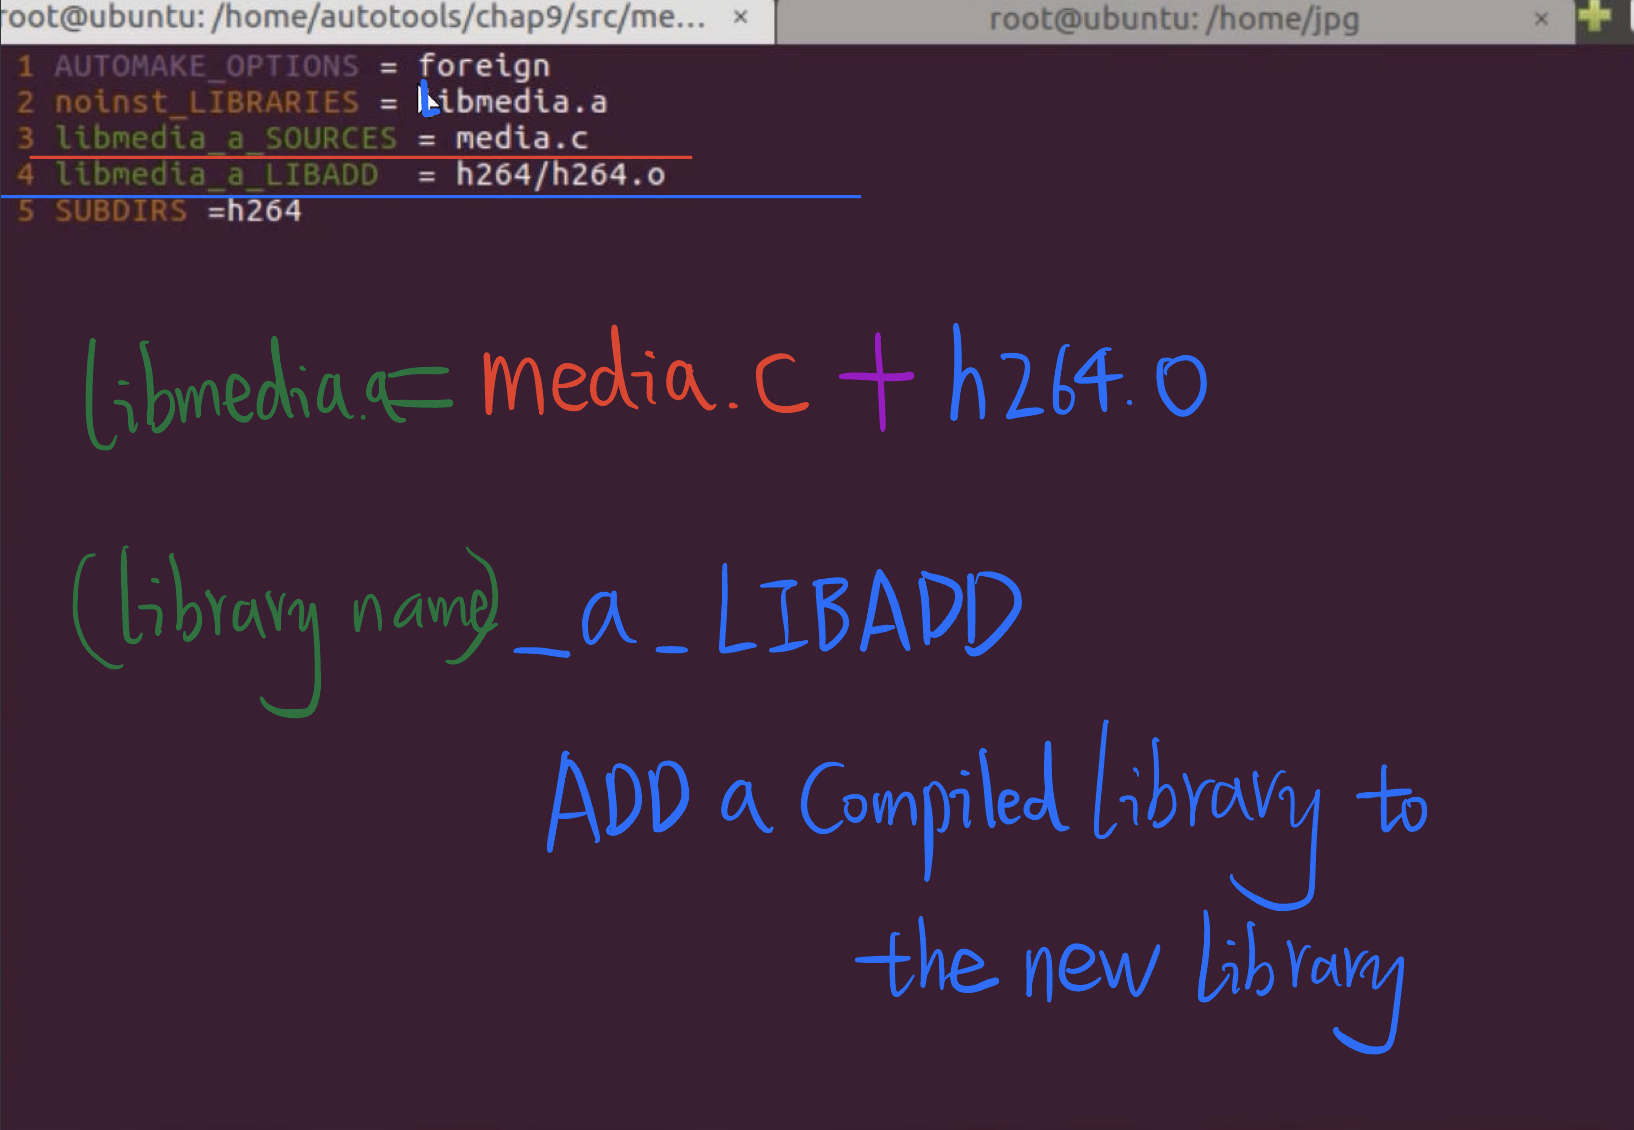 root@ubuntu: /home/autotools/chap9/src/me... × root@ubuntu: /home/jpg ×
1 AUTOMAKE_OPTIONS = foreign
2 noinst_LIBRARIES = libmedia.a
3 libmedia_a_SOURCES = media.c
4 libmedia_a_LIBADD = h264/h264.o
5 SUBDIRS =h264
libmedia.a= media.c + h264.o
(library name)_a_LIBADD
ADD a Compiled library to
the new library